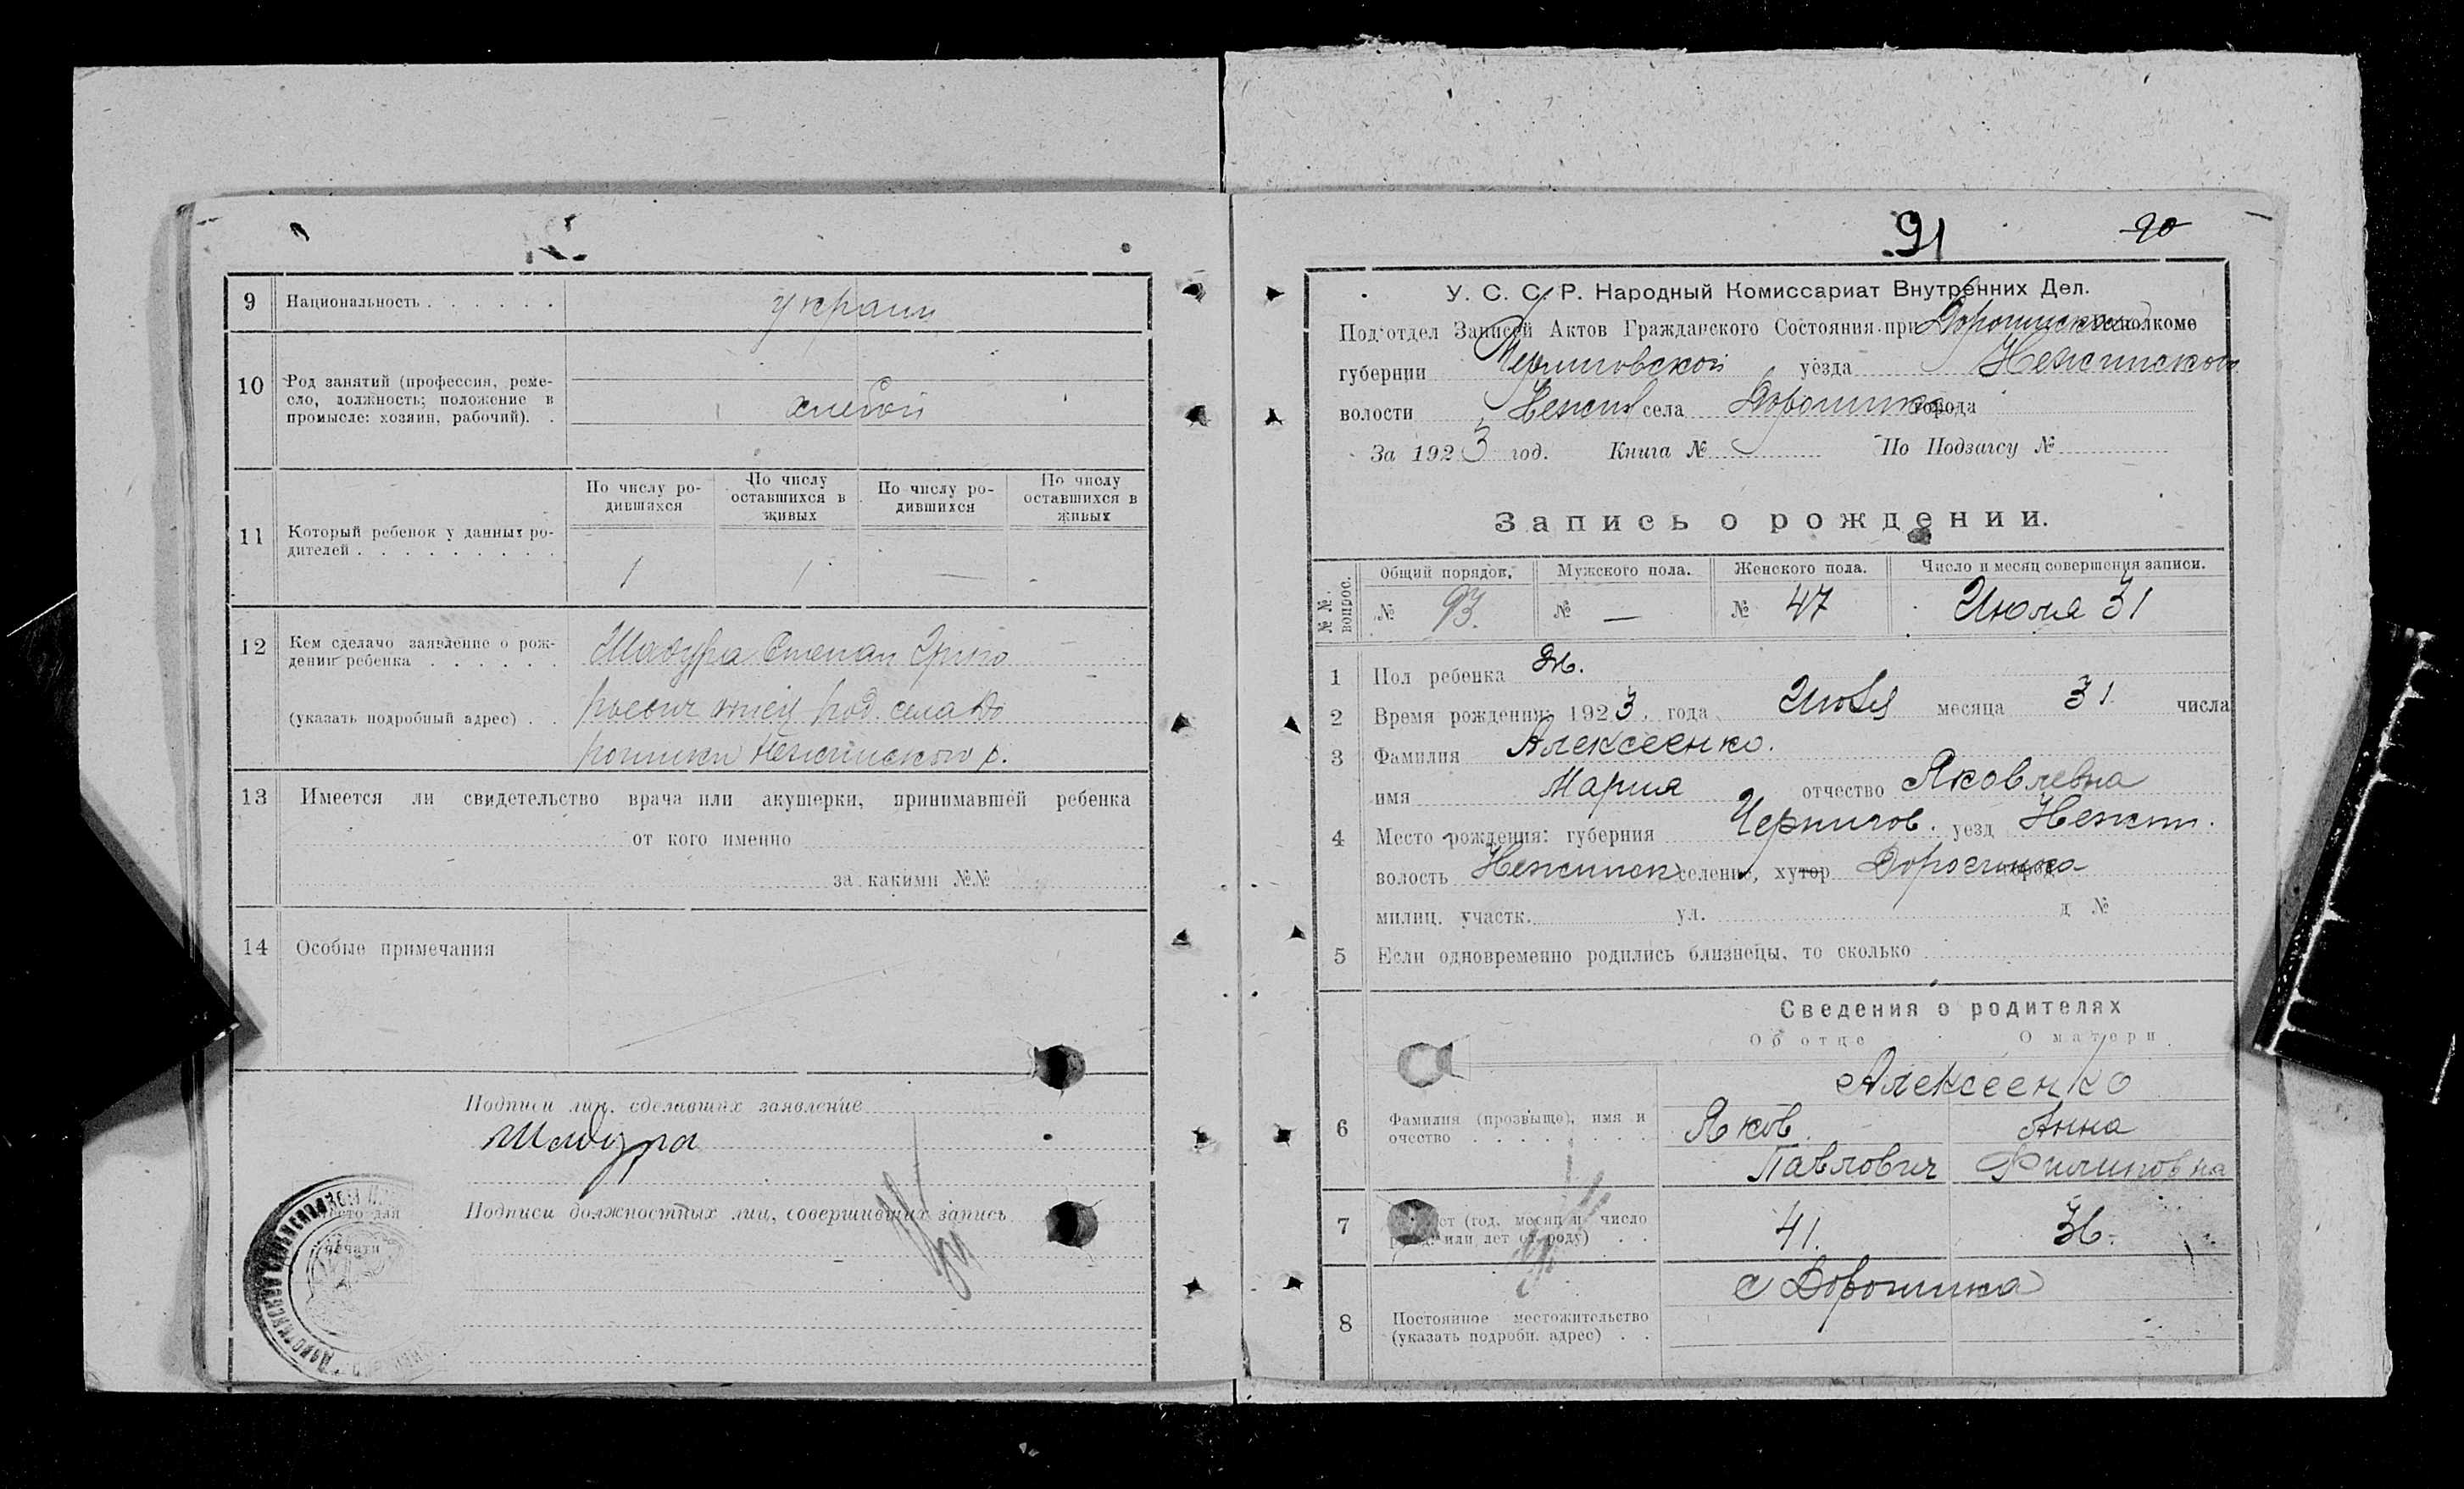 9 Национальность . . . . . . украин
10 Род занятий (профессия, реме-
сло, должность; положение в
промысле: хозяин, рабочий). .
хлебой
11 Который ребенок у данных ро-
дителей . . . . . . . . .
По числу ро-
дившихся
По числу
оставшихся в
живых
По числу ро-
дившихся
По числу
оставшихся в
живых
1 1 —
12 Кем сделано заявление о рож-
дении ребенка . . . . . .
(указать подробный адрес) . .
Шадура Степан Григо
рьевич отец род. села До
рогинки Неженского р.
13 Имеется ли свидетельство врача или акушерки, принимавшей ребенка
от кого именно
за какими №№
14 Особые примечания
Подписи лиц, сделавших заявление
Шадура
Подписи должностных лиц, совершивших запись
Место для
печати
91 20
У. С. С. Р. Народный Комиссариат Внутренних Дел.
Под'отдел Записей Актов Гражданского Состояния при Дорогинском Исполкоме
губернии Черниговской уезда Неженского
волости Нежин села Дорогинка города
За 1923 год. Книга № По Подзагсу №
Запись о рождении.
№№ вопрос.
Общий порядок. Мужского пола. Женского пола. Число и месяц совершения записи.
№ 93. № — № 47 Июля 31
1 Пол ребенка Ж.
2 Время рождения: 1923. года Июля месяца 31 числа
3 Фамилия Алексеенко.
имя Мария отчество Яковлевна
4 Место рождения: губерния Чернигов. уезд Нежин.
волость Неженск селение, хутор Дорогинка город
милиц. участк. ул. д №
5 Если одновременно родились близнецы, то сколько
Сведения о родителях
Об отце О матери
Алексеенко
6 Фамилия (прозвище), имя и
очество . . . . . . . .
Яков. Анна
Павлович Филиповна
7 ст (год, месяц и число
или лет от роду) . .
41. 36.
8 Постоянное местожительство
(указать подробн. адрес) . .
с Дорогинка